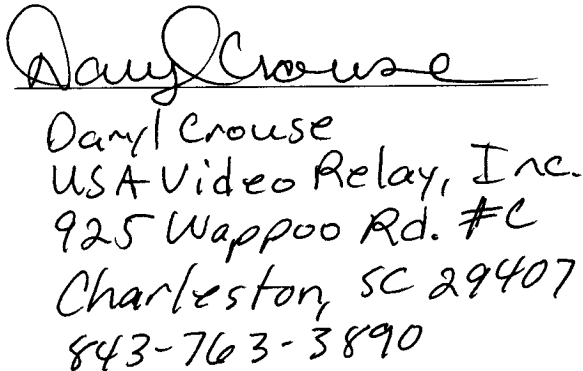 Daryl Crouse
Daryl Crouse
USA Video Relay, Inc.
925 Wappoo Rd. #C
Charleston, SC 29407
843-763-3890